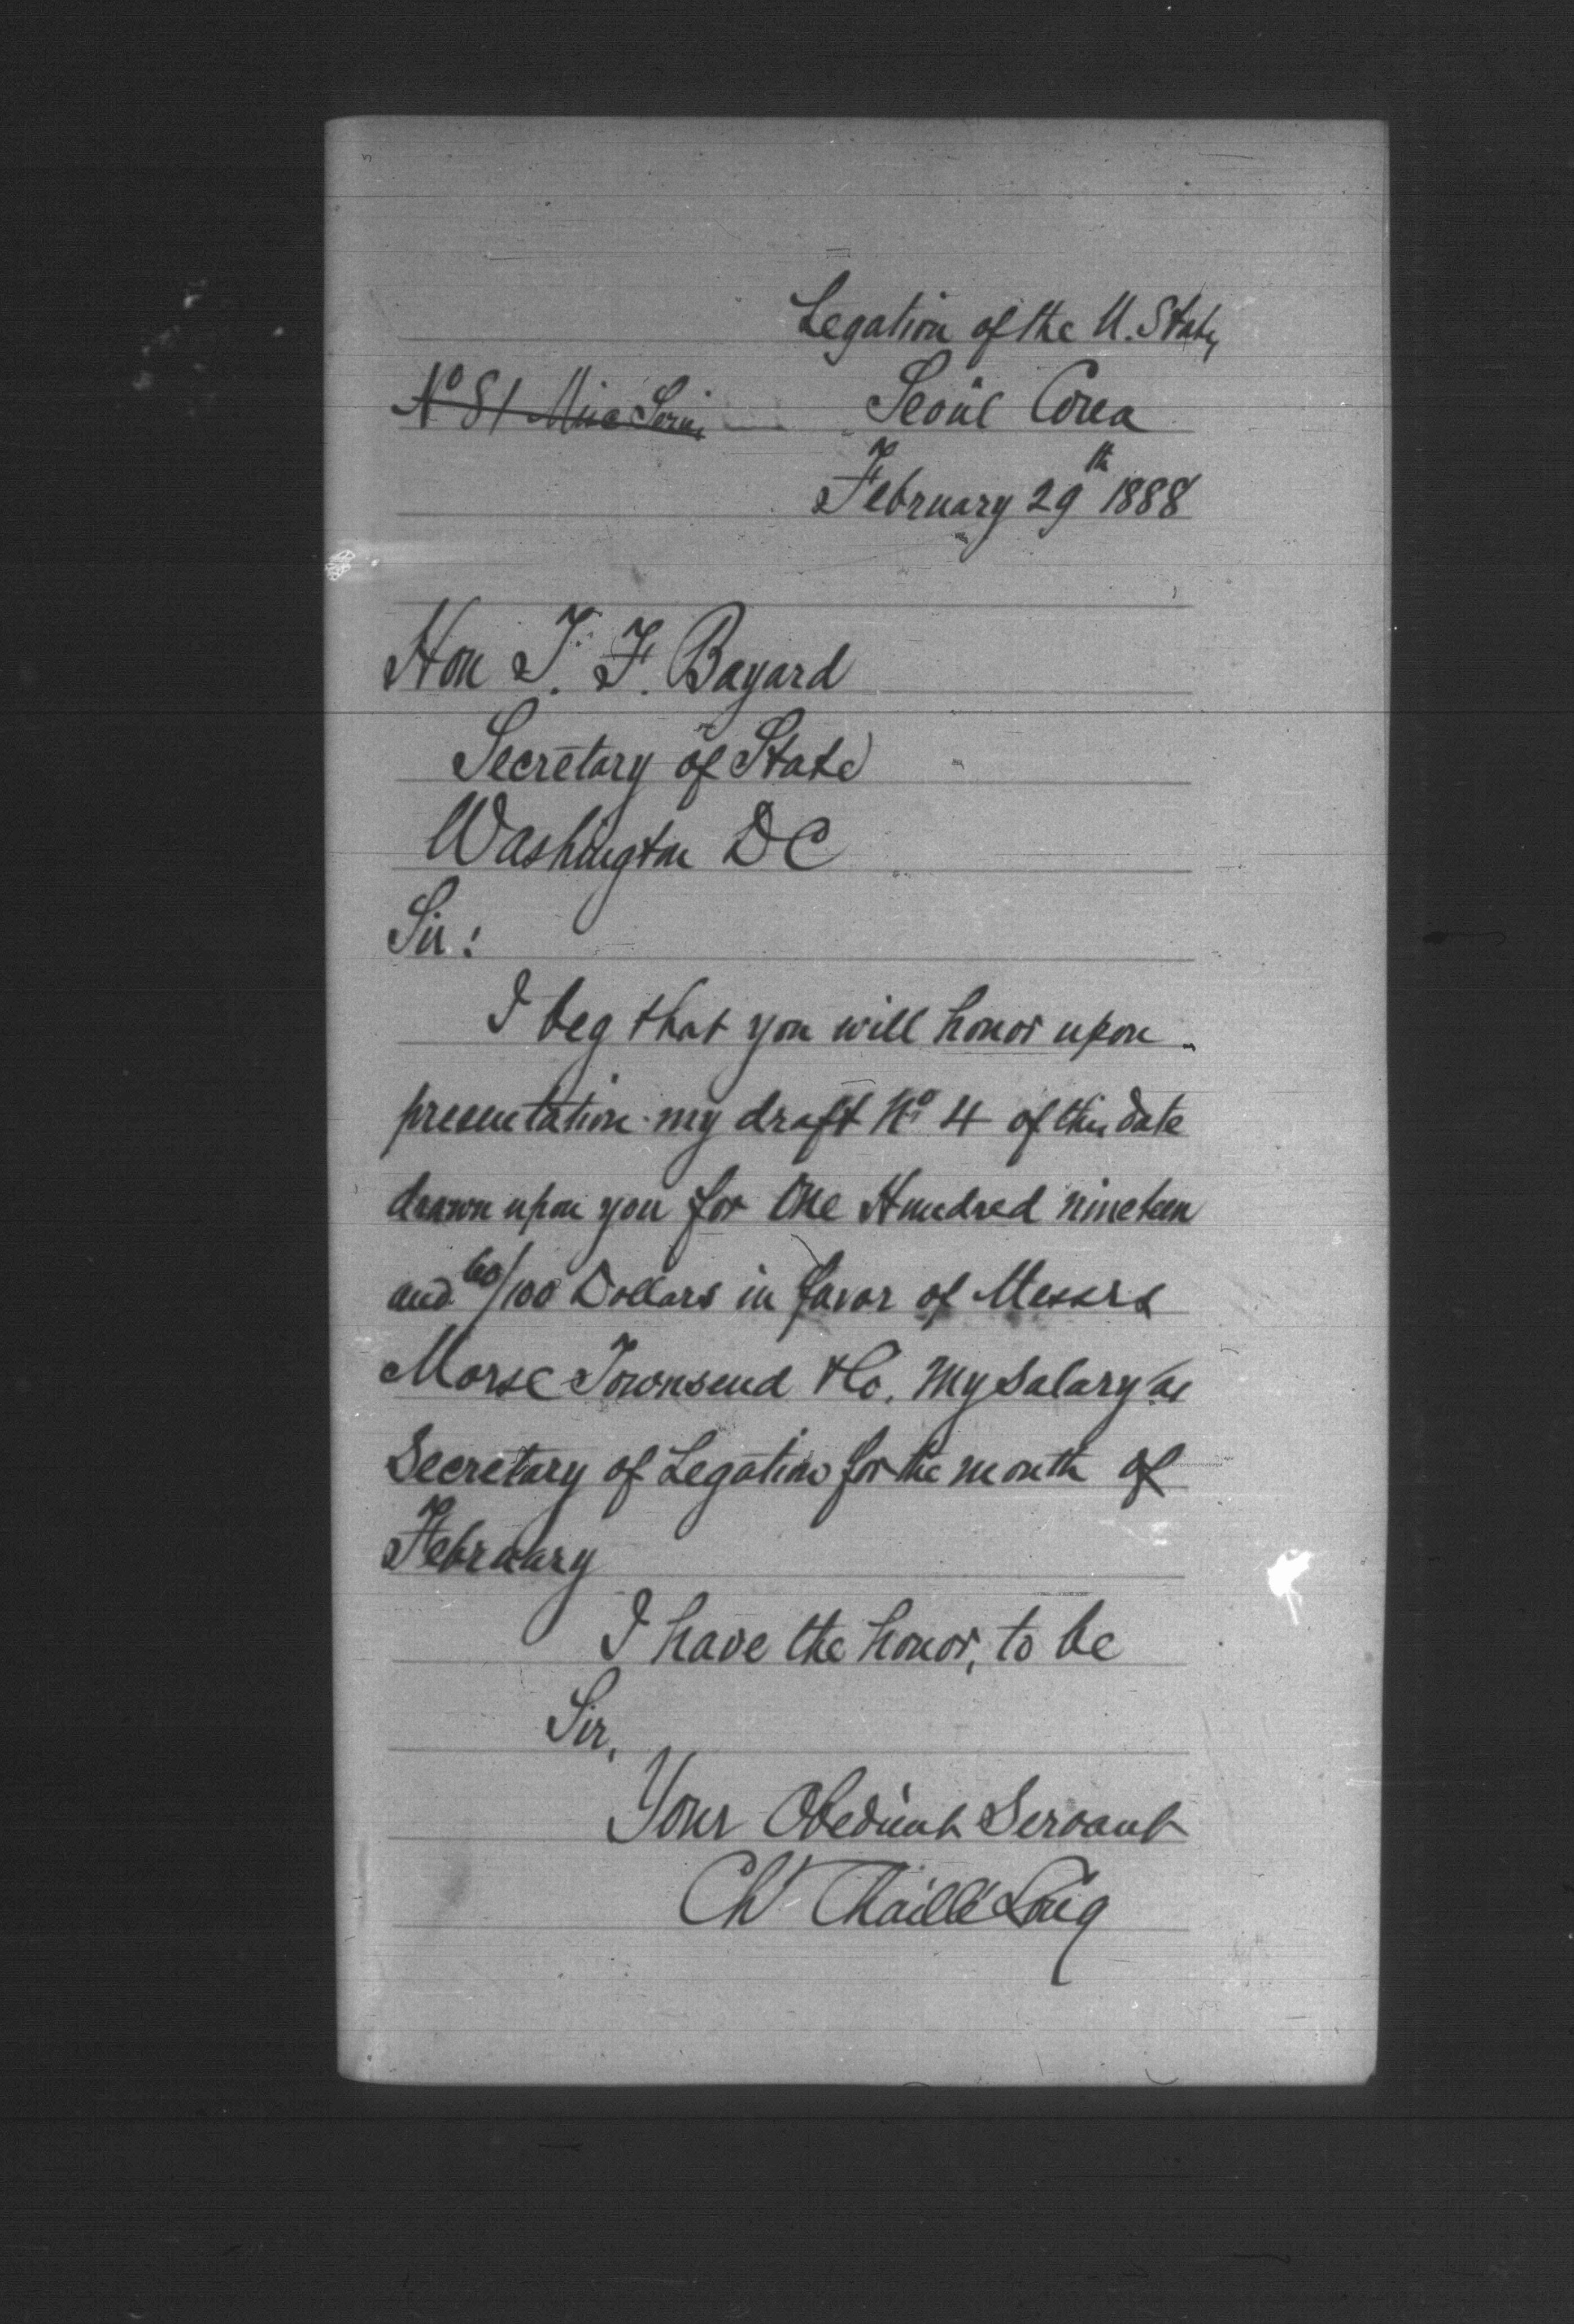 Legation of the U. States
Nº 81 Misc Series
Seoul Corea
February 29th 1888
Hon T. F. Bayard
Secretary of State
Washington DC
Sir:
I beg that you will honor upon
presentation my draft Nº 4 of this date
drawn upon you for One Hundred nineteen
and 60/100 Dollars in favor of Messrs
Morse Townsend & Co. My salary as
Secretary of Legation for the month of
February
I have the honor, to be
Sir,
Your Obedient Servant
Ch Chaillé Long